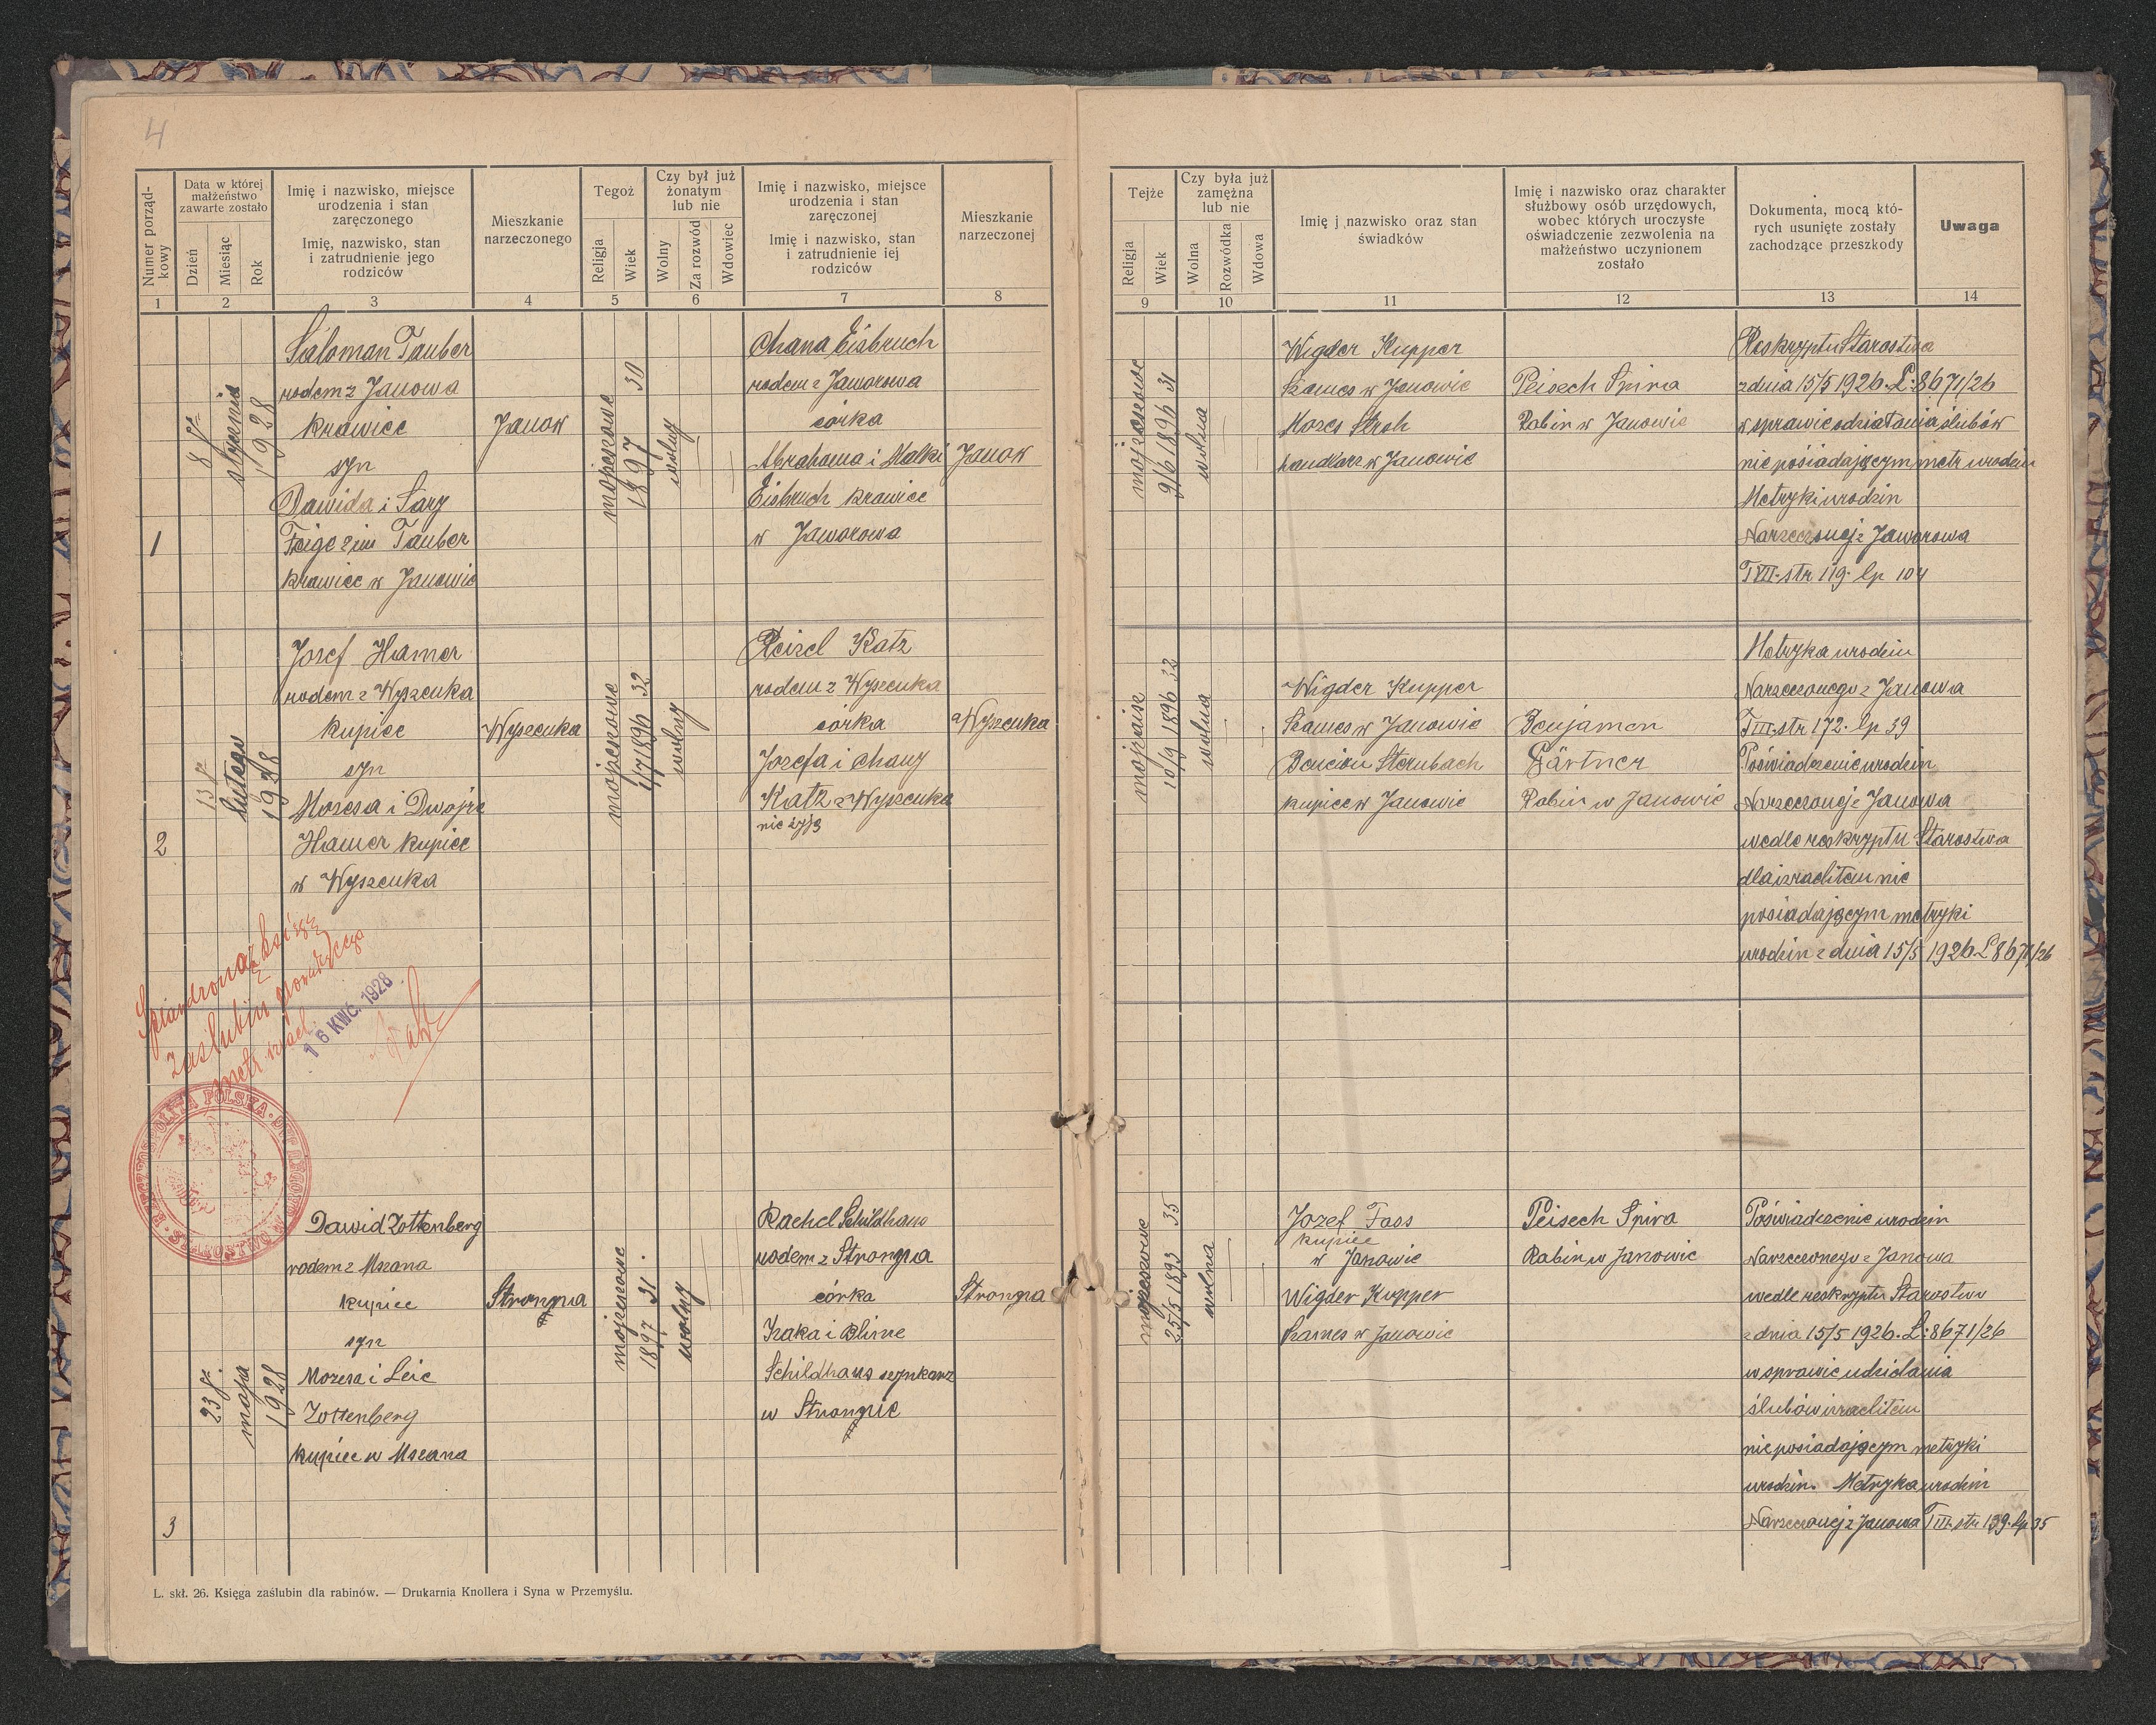 4
Numer porząd-
kowy
Data w której
małżeństwo
zawarte zostało
Dzień
Miesiąc
Rok
Imię i nazwisko, miejsce
urodzenia i stan
zaręczonego
Imię, nazwisko, stan
i zatrudnienie jego
rodziców
Mieszkanie
narzeczonego
Tegoż
Religja
Wiek
Czy był już
żonatym
lub nie
Wolny
Za rozwód
Wdowiec
Imię i nazwisko, miejsce
urodzenia i stan
zaręczonej
Imię i nazwisko, stan
i zatrudnienie iej
rodziców
Mieszkanie
narzeczonej
1 2 3 4 5 6 7 8
Tejże
Religja
Wiek
Czy była już
zamężna
lub nie
Wolna
Rozwódka
Wdowa
Imię j nazwisko oraz stan
świadków
Imię i nazwisko oraz charakter
służbowy osób urzędowych,
wobec których uroczyste
oświadczenie zezwolenia na
małżeństwo uczynionem
zostało
Dokumenta, mocą któ-
rych usunięte zostały
zachodzące przeszkody
Uwaga
9 10 11 12 13 14
1
8 go
stycznia
1928
Salomon Tauber
rodem z Janowa
krawiec
syn
Dawida i Sary
Feige zim Tauber
krawiec w Janowie
Janow
mojżeszowe
1897 30
wolny
Chana Eisbruch
rodem z Jaworowa
córka
Abrahama i Malki
Eisbruch krawiec
w Jaworowa
Janow
mojżeszowe
9/6 1896 31
wolna
Wigder Kupper
Szames w Janowie
Mozes Stroh
handlarz w Janowie
Peisech Spira
Rabin w Janowie
Reskryptu Starostwa
z dnia 15/5 1926. L: 8671/26
w sprawie udziałania ślubów
nie pośiadającym metr urodzin
Metryki urodzin
Narzeczonej z Jaworowa
T VII. str 119. lp 104
2
13 go
lutego
1928
Jozef Hamer
rodem z Wyszenka
kupiec
syn
Mozesa i Dwojre
Hamer kupiec
w Wyszenka
Wyszenka
mojżeszowe
1/7 1896 32
wolny
Reizel Katz
rodem z Wyszenka
córka
Jozefa i Chany
Katz z Wyszenka
nie żyją
Wyszenka
mojżaisz
10/9 1896 32
wolna
Wigder Kupper
Szames w Janowie
Bencion Sternbach
kupiec w Janowie
Benjamen
Gärtner
Rabin w Janowie
Metryka urodzin
Narzeczonego z Janowa
T III. str 172. lp 39
Poświadczenie urodzin
Narzeczonej z Janowa
wedle reskryptu Starostwa
dla izraelitem nie
posiadającym metryki
urodzin z dnia 15/5 1926 L 8671/26
zaślubin
metr izrael.
16 KWC. 1928
RZECZPOSPOLITA POLSKA
STAROSTWO
3
23 go.
maja
1928
Dawid Zottenberg
rodem z Mszana
kupiec
syn
Mozesa i Leie
Zottenberg
kupiec w Mszana
Stronna
mojżeszowe
1897 31.
wolny
Rachel Schildhaus
rodem z Stronna
córka
Izaka i Blime
Schildhaus szynkarz
w Stronnie
Stronna
mojżeszowe
25/5 1893 35
wolna
Jozef Fass
kupiec
w Janowie
Wigder Kupper
Szames w Janowie
Peisech Spira
Rabin w Janowie
Poświadczenie urodzin
Narzeczonego z Janowa
wedle reskryptu Starostwa
z dnia 15/5 1926. L: 8671/26
w sprawie udzielania
ślubów izraelitem
nie posiadającym metryki
urodzin. Metryka urodzin
Narzeczonej z Janowa T III. str 199. lp 35
L. skł. 26. Księga zaślubin dla rabinów. — Drukarnia Knollera i Syna w Przemyślu.